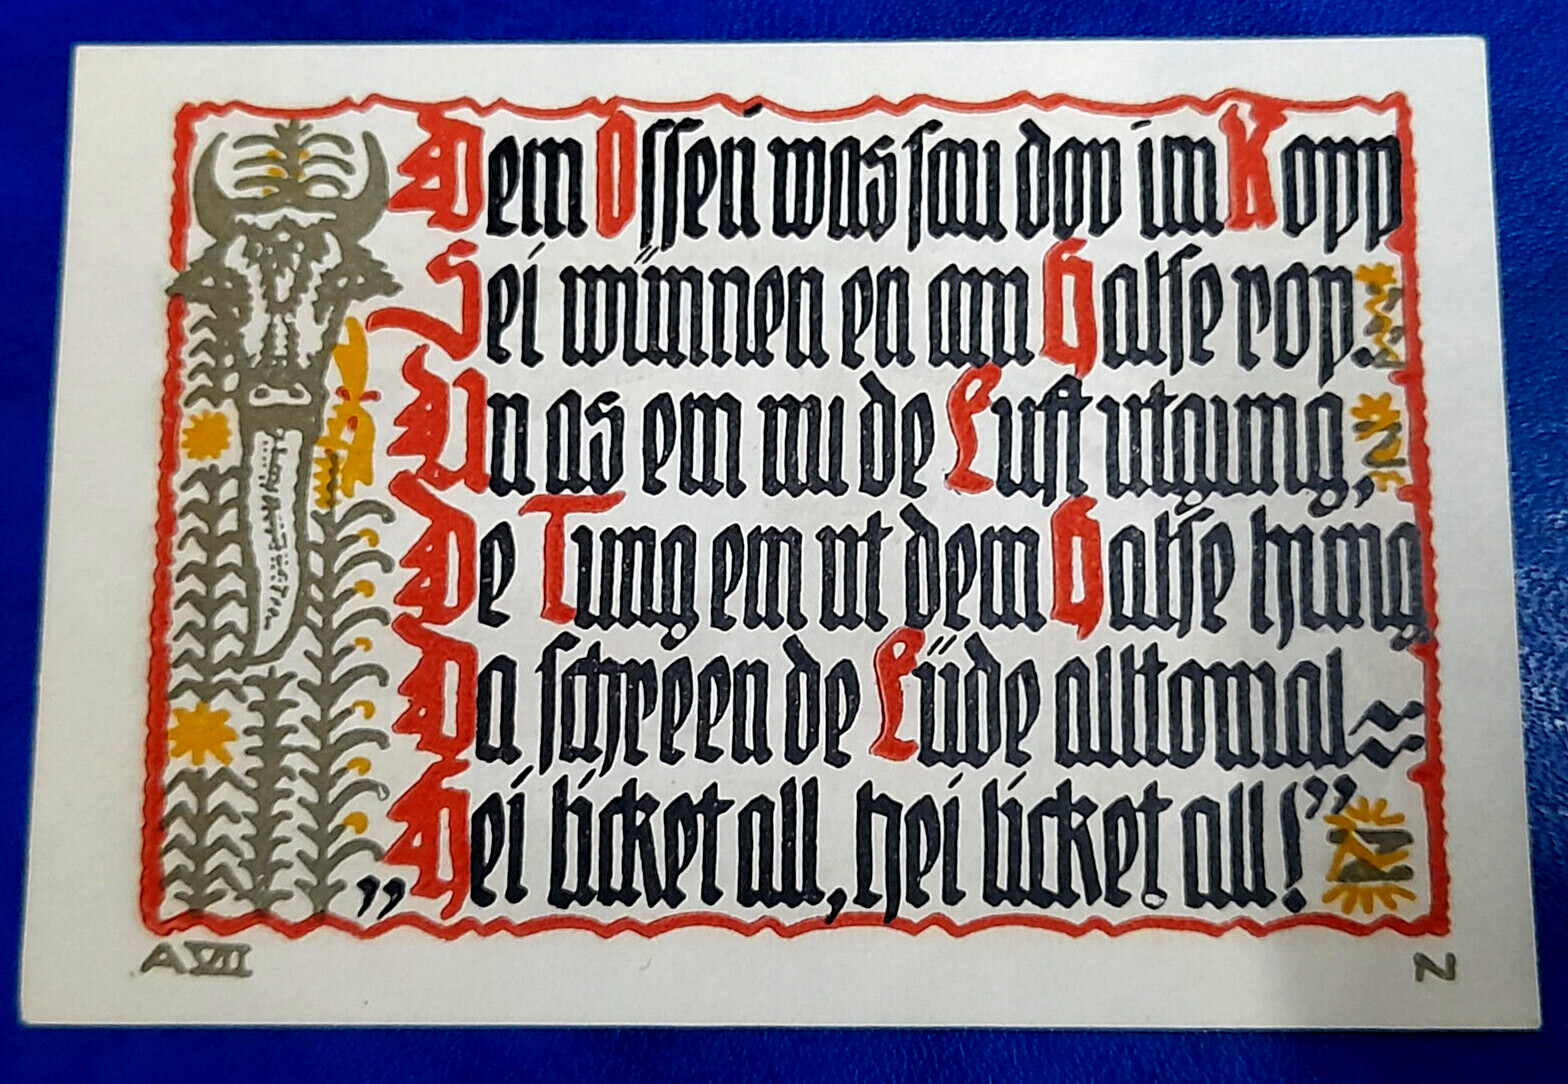 Dem Ossen was sau dov im Kopp
Sei wünnen en am Halse rop.
Un as em nu de Luft utgung,
De Tung em ut dem Halse hung
Da schreen de Lüde alltomal
„Hei licket all, hei licket all!”
A VII